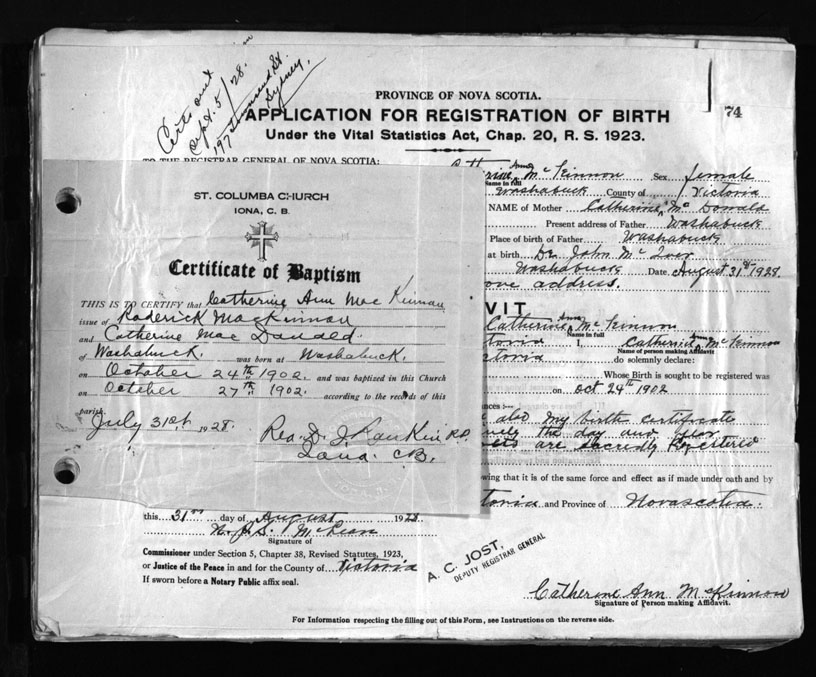 Certs out
Sept. 5/28.
197 Townsend St.
Sydney.
PROVINCE OF NOVA SCOTIA.
APPLICATION FOR REGISTRATION OF BIRTH
74
Under the Vital Statistics Act, Chap. 20, R. S. 1923.
TO THE REGISTRAR GENERAL OF NOVA SCOTIA:
Ann
McKinnon Sex female
Name in full
Washabuck County of Victoria
NAME of Mother Catherine McDonald
Present address of Father Washabuck
Place of birth of Father Washabuck
at birth Dr. John McIver
Washabuck Date August 31st 1928.
ove address.
VIT
Catherine Ann McKinnon
Name in full
toria I, Catherine Ann McKinnon
Name of person making Affidavit
toria do solemnly declare:
Whose Birth is sought to be registered was
on Oct 24th 1902
ances :—
also my birth certificate
the day and
are sacredly Registered
wing that it is of the same force and effect as if made under oath and by
toria and Province of Novascotia.
ST. COLUMBA CHURCH
IONA, C. B.
Certificate of Baptism
THIS IS TO CERTIFY that Catherine Ann MacKinnan
issue of Roderick MacKinnan
and Catherine Mac Donald.
of Washabuck. was born at Washabuck.
on October 24th 1902. and was baptized in this Church
on October 27th 1902. according to the records of this
parish.
July 31st, 1928. Rev. D. J. Rankin P.P.
Iona. CB.
this 31st day of August 1928
McLean
Signature of
Commissioner under Section 5, Chapter 38, Revised Statutes, 1923,
or Justice of the Peace in and for the County of Victoria
If sworn before a Notary Public affix seal.
A. C. JOST,
DEPUTY REGISTRAR GENERAL
Catherine Ann McKinnon
Signature of Person making Affidavit.
For Information respecting the filling out of this Form, see Instructions on the reverse side.